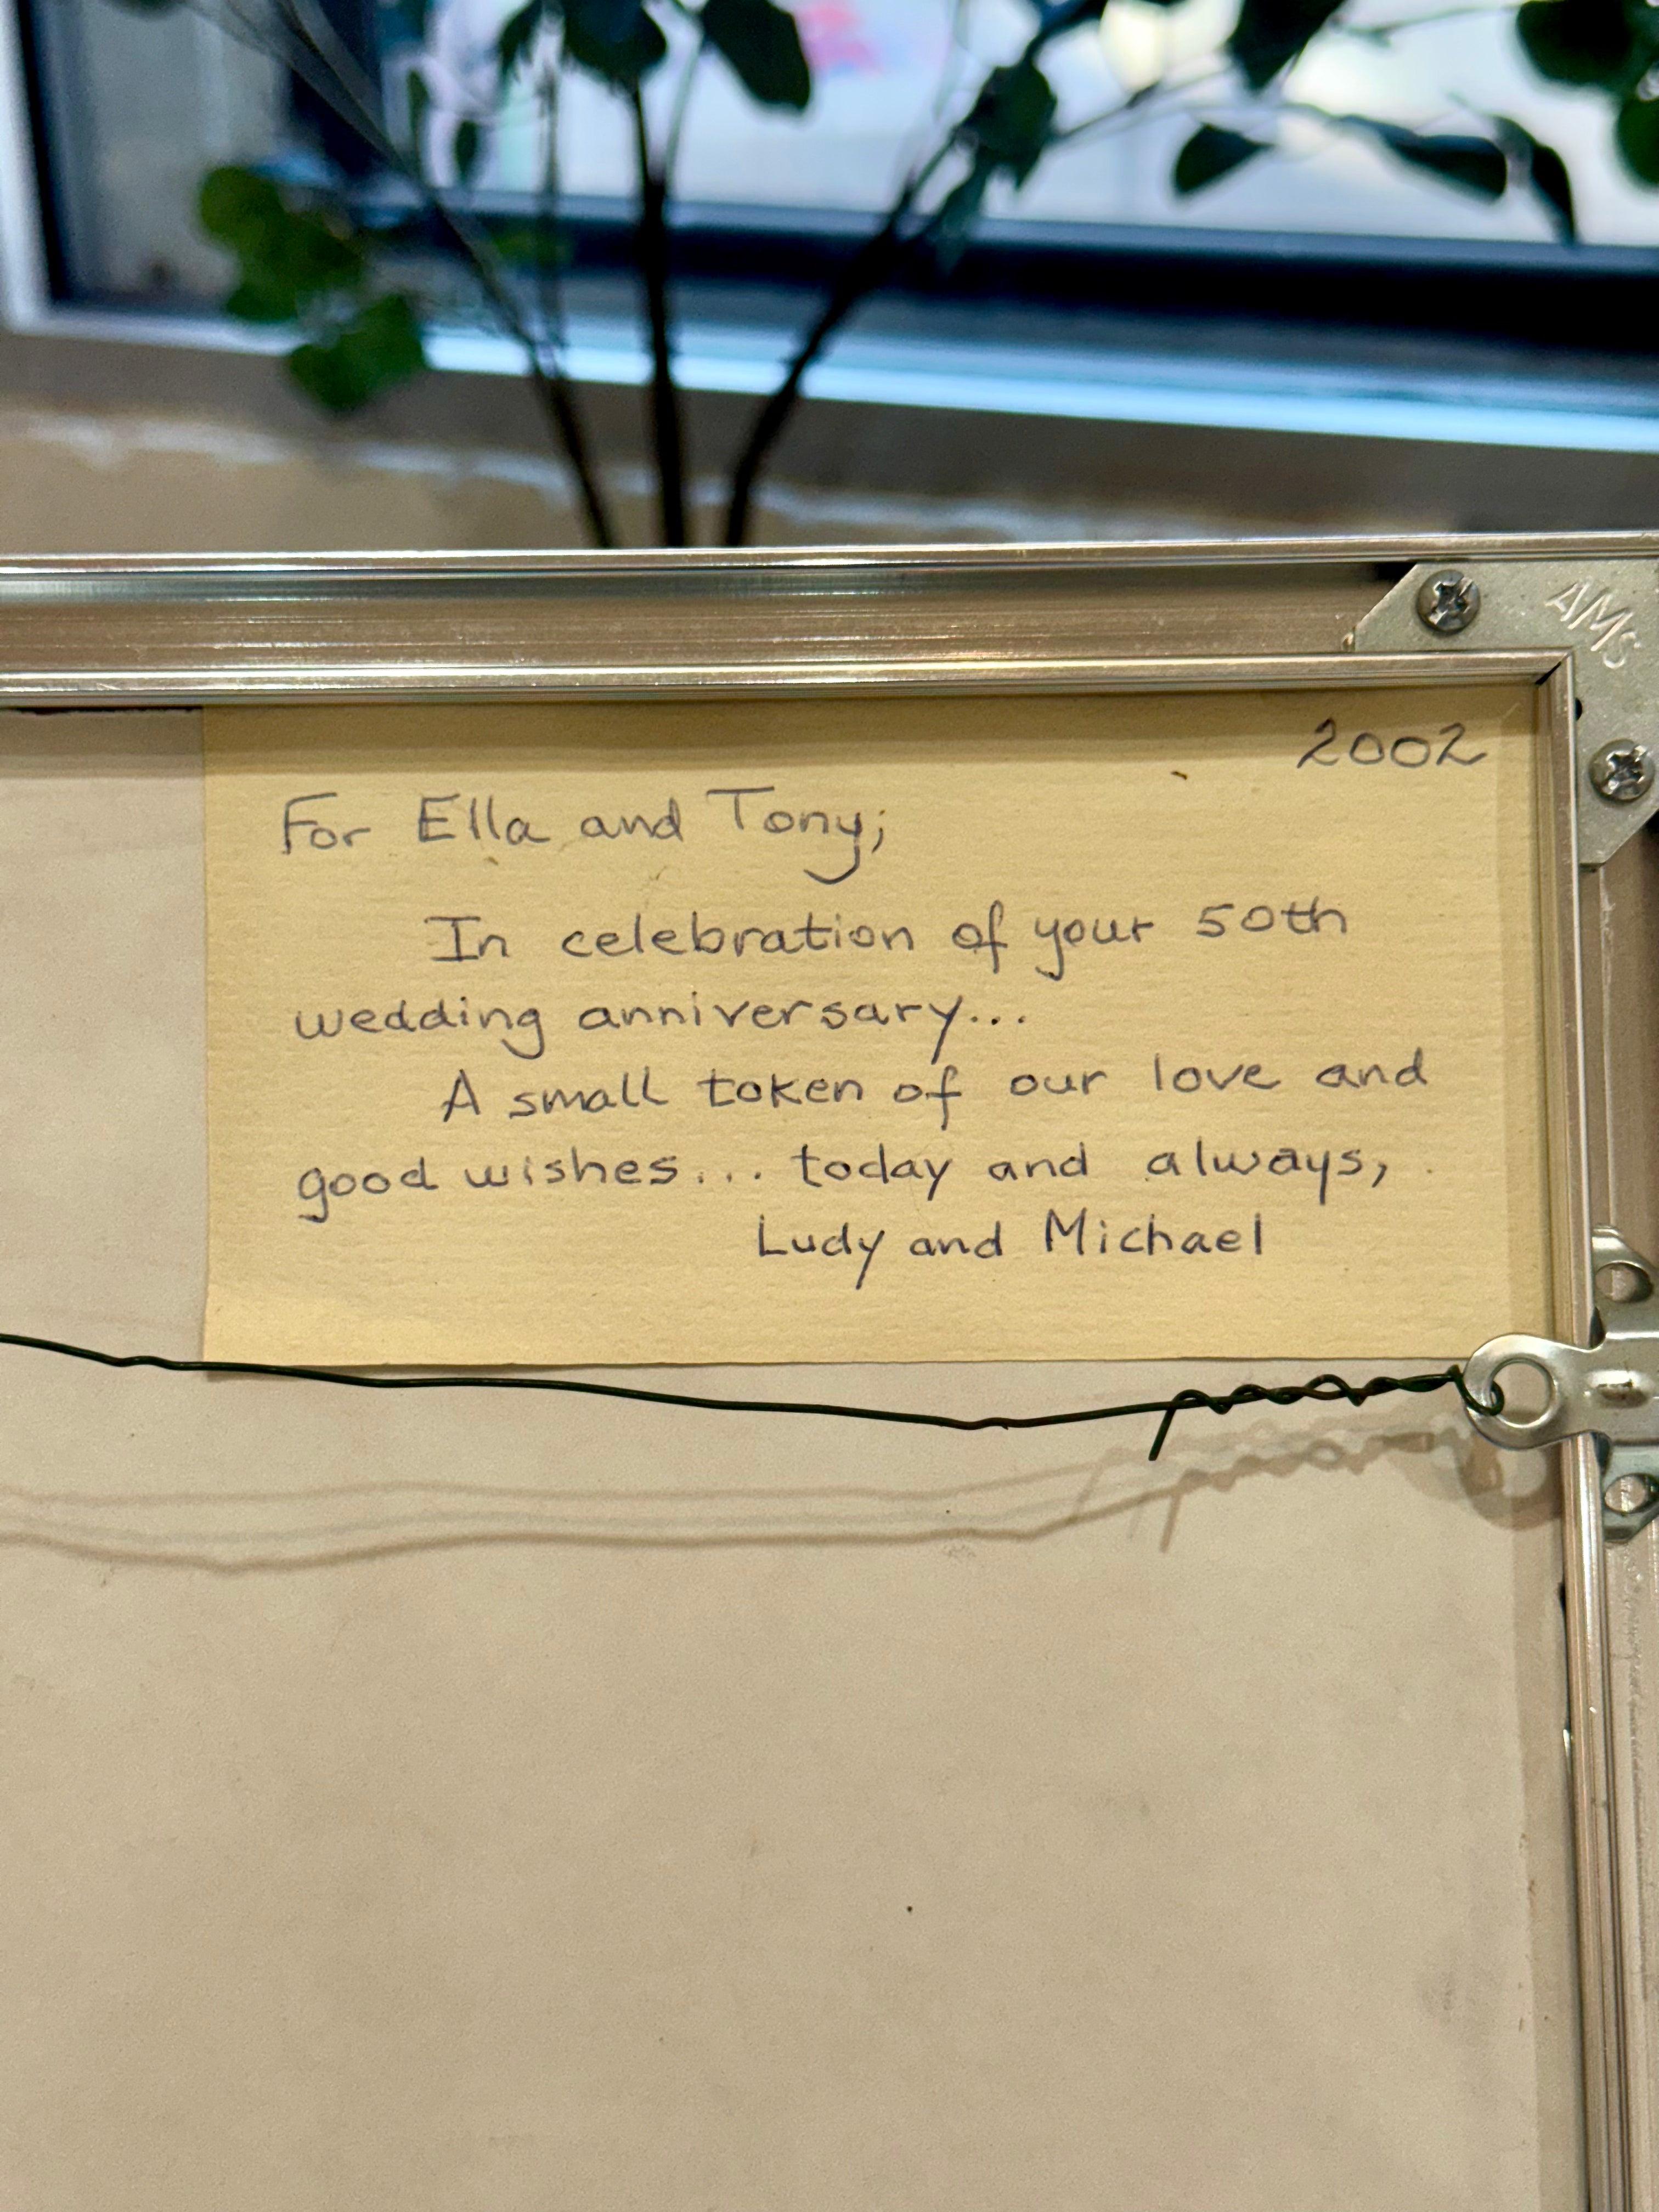 AMS
2002
For Ella and Tony;
In celebration of your 50th
wedding anniversary...
A small token of our love and
good wishes... today and always,
Ludy and Michael